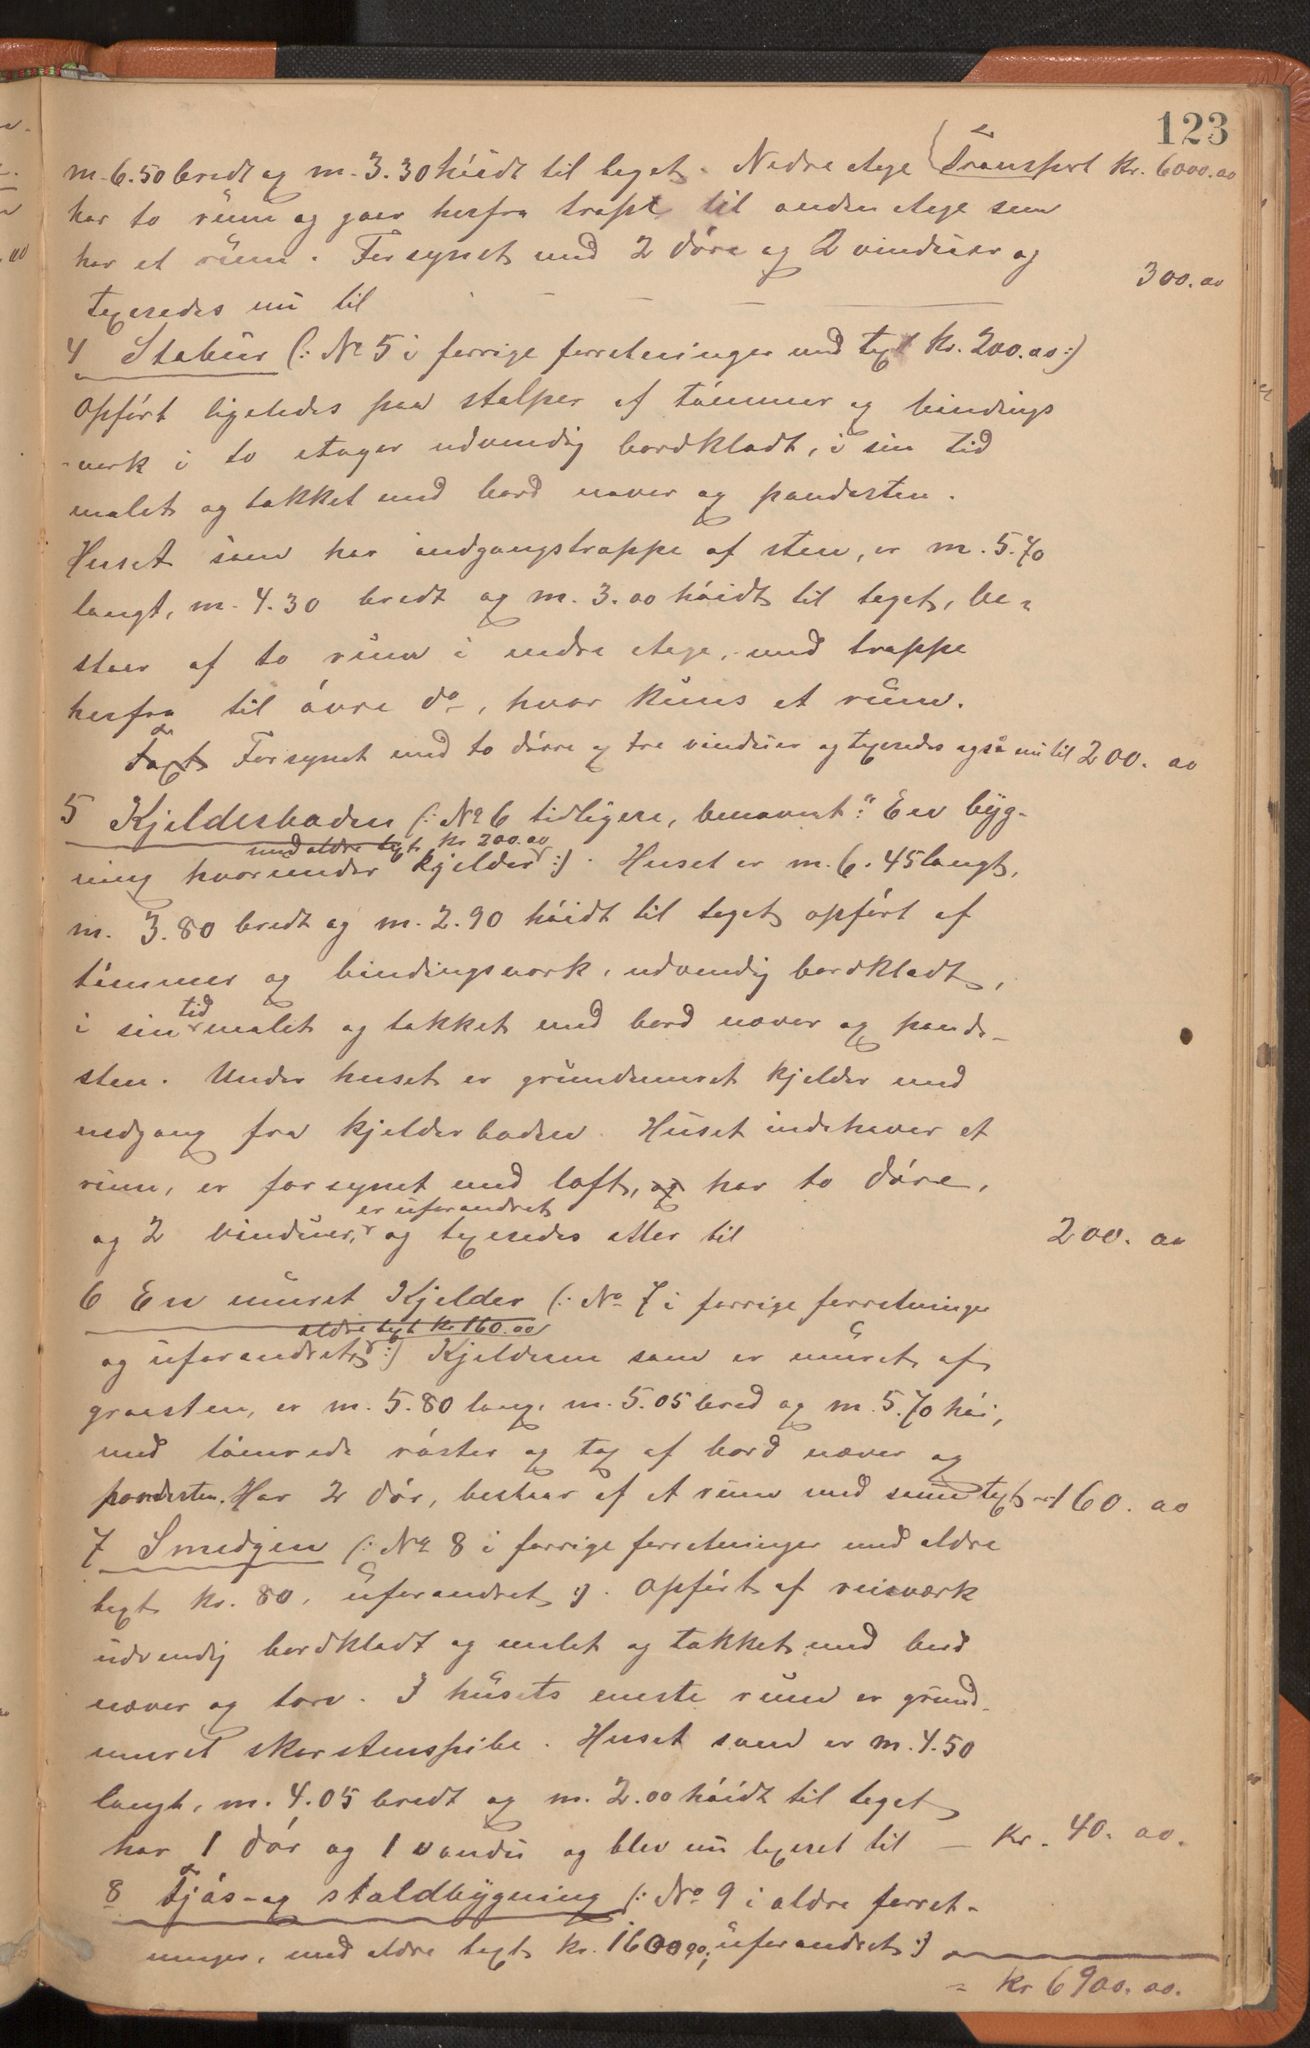 123
m. 6.50 bredt og m. 3.30 höidt til taget. Nedre etage (Transport Kr. 6000.00
har to rum og gaar herfra trapt til anden etage som
har et rum. Forsynet med 2 döre og 2 vinduer og
taxeredes nu til — — — 300.00
4 Stabur (: No 5 i forrige forretninger med taxt Kr. 200.00 :)
opfört ligeledes paa stolper af tömmer og bindings
-verk i to etager udvendig bordklædt, i sin tid
malet og tækket med bord næver og pandesten.
Huset som har indgangstrappe af sten, er m. 5.70
langt, m. 4.30 bredt og m. 3.00 höidt til taget, be-
staar af to rum i nedre etage, med trappe
herfra til övre do, hvor kuns et rum.
Taxt Forsynet med to dörre og tre vinduer og taxeredes også nu til 200.00
5 Kjelderboden (: No 6 tidligere, benævnt: "En byg-
med ældre taxt Kr 200.00
ning hvorunder kjelder :). Huset er m. 6.45 langt,
m. 3.80 bredt og m. 2.90 höidt til taget opfört af
tömmer og bindingsverk, udvendig bordklædt,
i sin tid malet og tækket med bord næver og pande-
sten. Under huset er grundmuret kjelder med
nedgang fra kjelderboden. Huset indehaver et
rum, er forsynet med loft, og har to döre,
er uforandret
og 2 vinduer, og taxeredes atter til 200.00
6 En muret Kjelder (: No 7 i forrige forretninger
ældre taxt Kr 160.00
og uforandret, :) Kjelderen som er muret af
graasten, er m. 5.80 lang, m. 5.05 bred og m. 5.70 höi,
med tömrede röster og tag af bord næver og
pandesten. Har 2 dör, bestaar af et rum med samme taxt - 160.00
7 Smedjen (: No 8 i forrige forretninger med ældre
taxt Kr. 80, uforandret :). Opfört af reisværk
udvendig bordklædt og malet og tækket med bord
næver og torv. I husets eneste rum er grund-
muret skorstenspibe. Huset som er m. 4.50
langt, m. 4.05 bredt og m. 2.00 höidt til taget
har 1 dör og 1 vindu og blev nu taxeret til — Kr. 40.00.
8 Fjös- og staldbygning (: No 9 i ældre forret-
ninger, med ældre taxt Kr. 1600.00, uforandret :)
= Kr 6900.00.